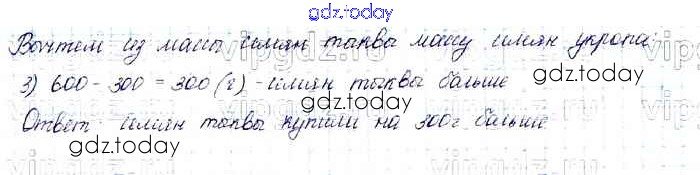 gdz.today
Вычтем из массы семян тыквы массу семян укропа:
3) 600 - 300 = 300 (г) - семян тыквы больше
gdz.today
gdz.today
Ответ: семян тыквы купили на 300г больше
gdz.today